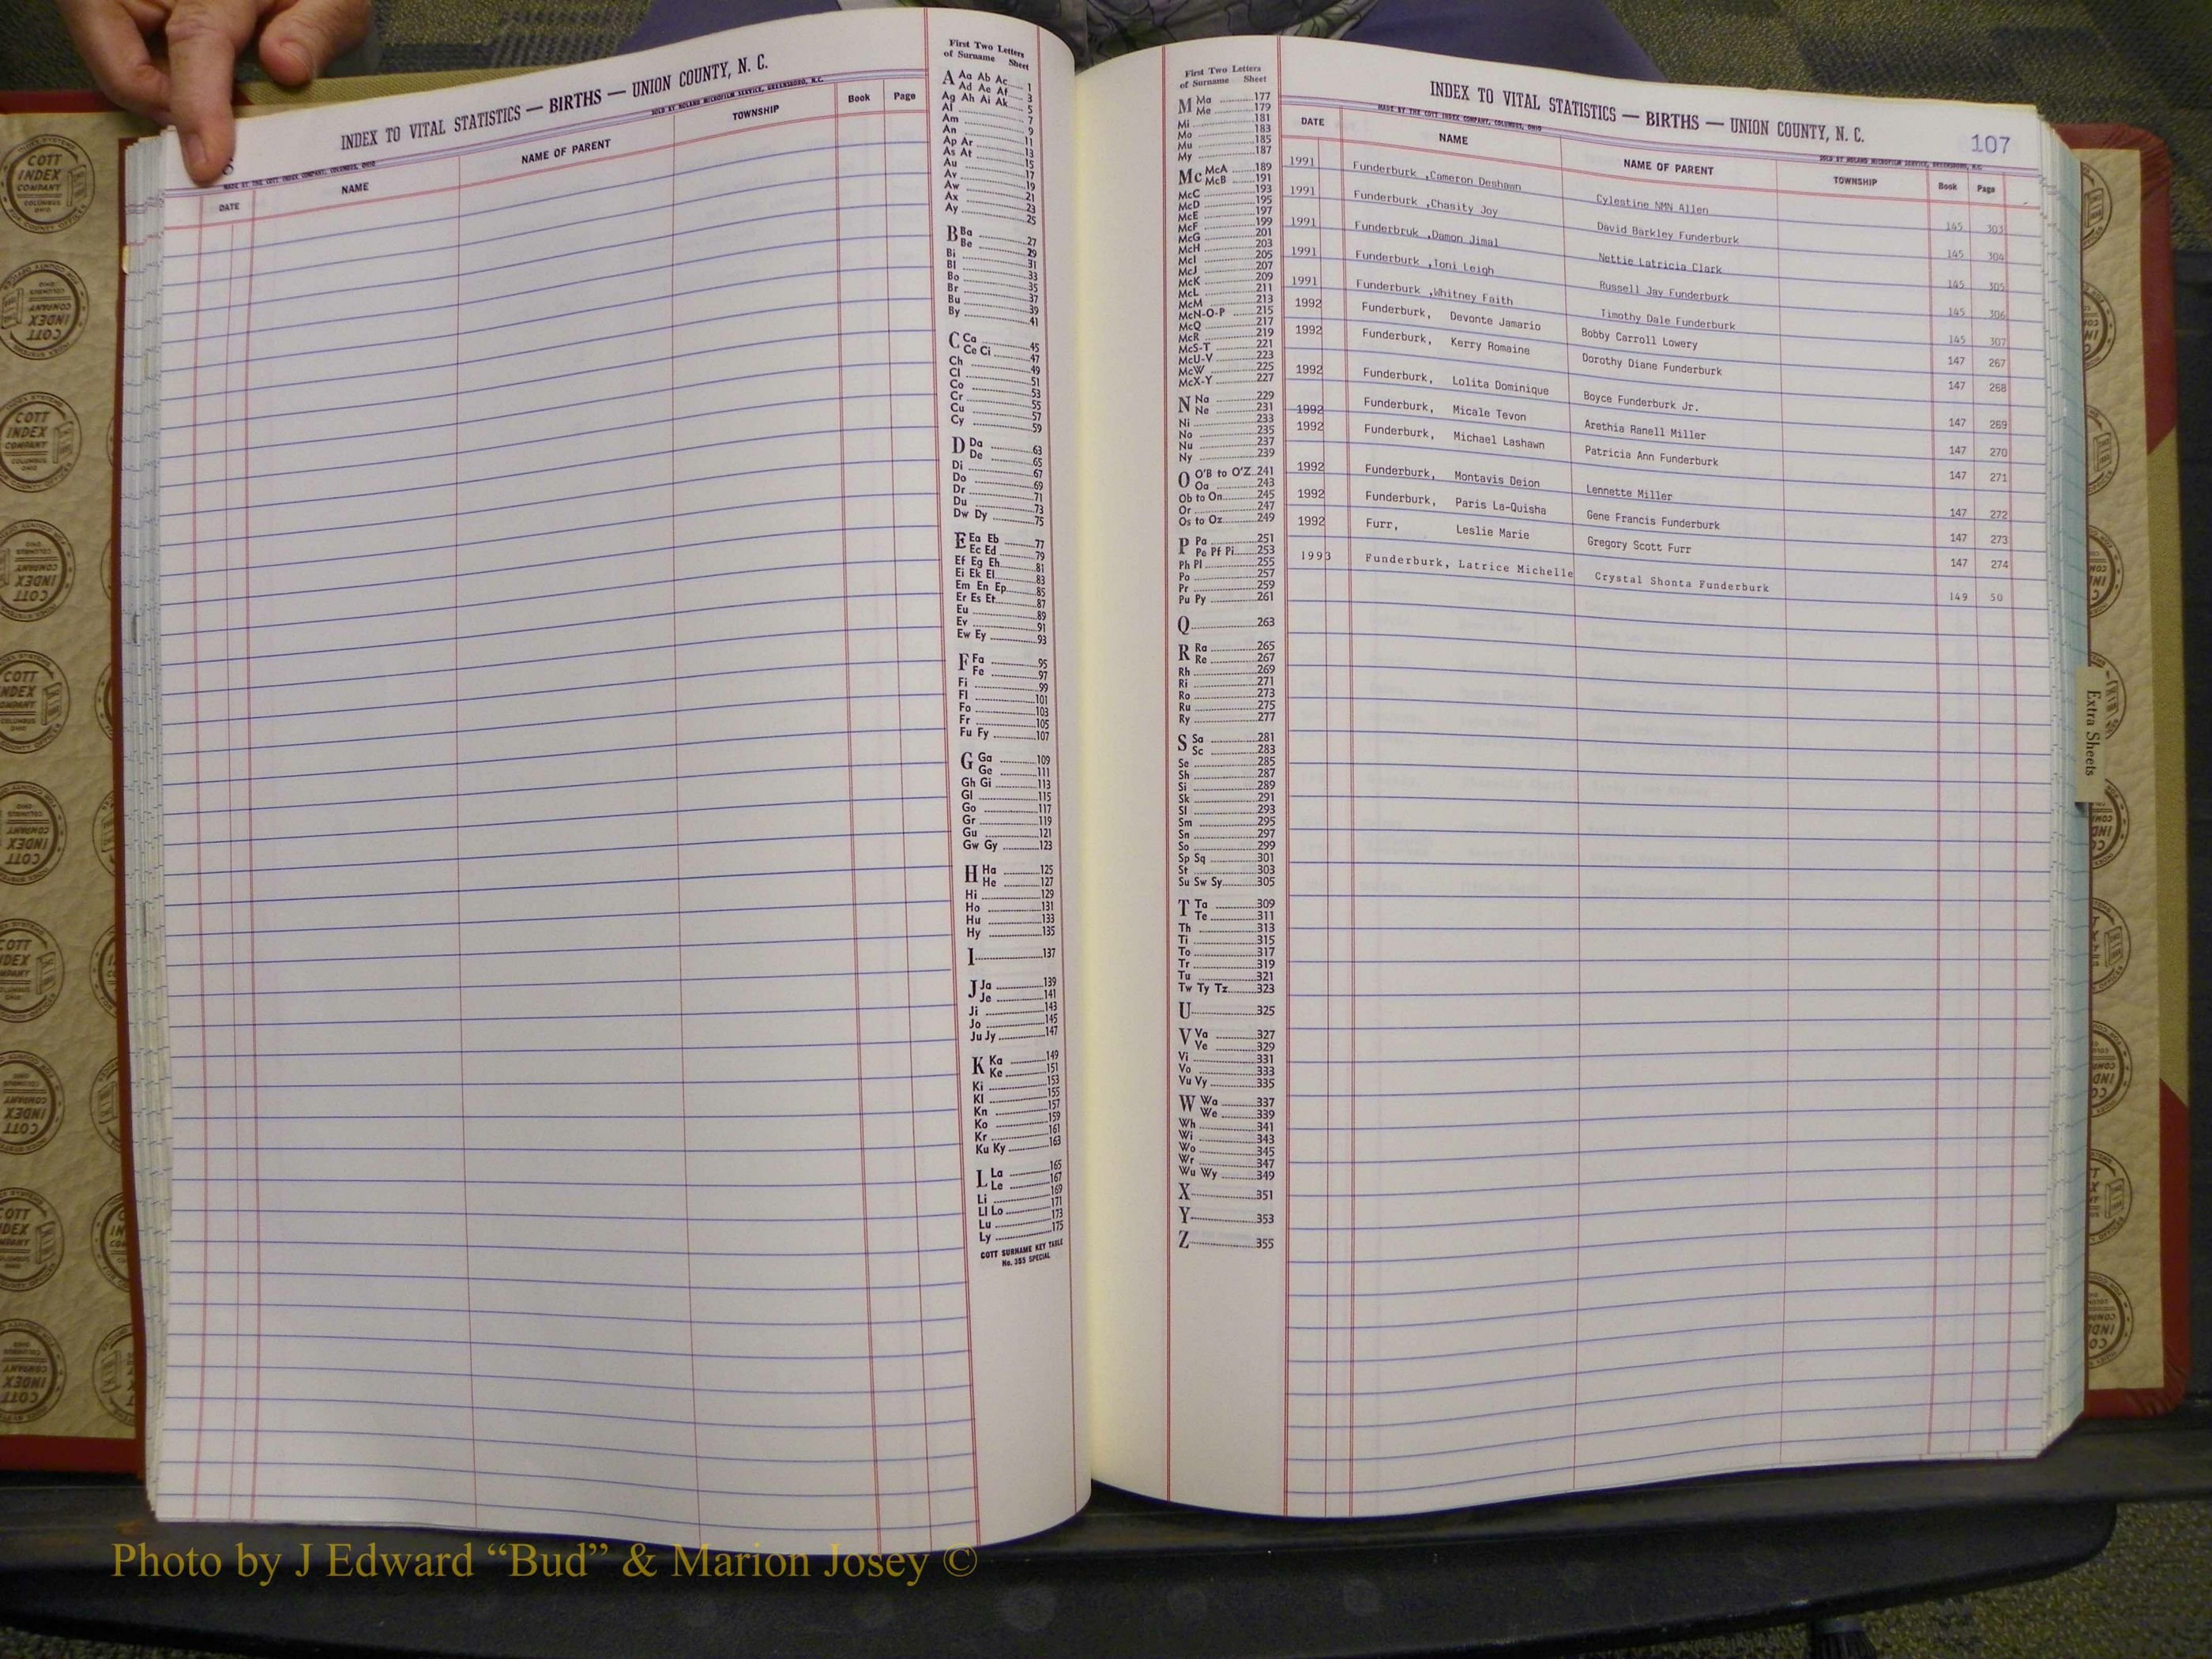 INDEX TO VITAL STATISTICS — BIRTHS — UNION COUNTY, N. C.
MADE BY THE COTT INDEX COMPANY, COLUMBUS, OHIO
SOLD BY ROLAND MICROFILM SERVICE, GREENSBORO, N.C.
DATE NAME NAME OF PARENT TOWNSHIP Book Page
First Two Letters
of Surname Sheet
A Aa Ab Ac 1
Ad Ae Af 3
Ag Ah Ai Ak 5
Al 7
Am 9
An 11
Ap Ar 13
As At 15
Au 17
Av 19
Aw 21
Ax 23
Ay 25
B Ba 27
Be 29
Bi 31
Bl 33
Bo 35
Br 37
Bu 39
By 41
C Ca 45
Ce Ci 47
Ch 49
Cl 51
Co 53
Cr 55
Cu 57
Cy 59
D Da 63
De 65
Di 67
Do 69
Dr 71
Du 73
Dw Dy 75
E Ea Eb 77
Ec Ed 79
Ef Eg Eh 81
Ei Ek El 83
Em En Ep 85
Er Es Et 87
Eu 89
Ev 91
Ew Ey 93
F Fa 95
Fe 97
Fi 99
Fl 101
Fo 103
Fr 105
Fu Fy 107
G Ga 109
Ge 111
Gh Gi 113
Gl 115
Go 117
Gr 119
Gu 121
Gw Gy 123
H Ha 125
He 127
Hi 129
Ho 131
Hu 133
Hy 135
I 137
J Ja 139
Je 141
Ji 143
Jo 145
Ju Jy 147
K Ka 149
Ke 151
Ki 153
Kl 155
Kn 157
Ko 159
Kr 161
Ku Ky 163
L La 165
Le 167
Li 169
Ll Lo 171
Lu 173
Ly 175
COTT SURNAME KEY TABLE
No. 355 SPECIAL
First Two Letters
of Surname Sheet
M Ma 177
Me 179
Mi 181
Mo 183
Mu 185
My 187
Mc McA 189
McB 191
McC 193
McD 195
McE 197
McF 199
McG 201
McH 203
McI 205
McJ 207
McK 209
McL 211
McM 213
McN-O-P 215
McQ 217
McR 219
McS-T 221
McU-V 223
McW 225
McX-Y 227
N Na 229
Ne 231
Ni 233
No 235
Nu 237
Ny 239
O O'B to O'Z 241
Oa 243
Ob to On 245
Or 247
Os to Oz 249
P Pa 251
Pe Pf Pi 253
Ph Pl 255
Po 257
Pr 259
Pu Py 261
Q 263
R Ra 265
Re 267
Rh 269
Ri 271
Ro 273
Ru 275
Ry 277
S Sa 281
Sc 283
Se 285
Sh 287
Si 289
Sk 291
Sl 293
Sm 295
Sn 297
So 299
Sp Sq 301
St 303
Su Sw Sy 305
T Ta 309
Te 311
Th 313
Ti 315
To 317
Tr 319
Tu 321
Tw Ty Tz 323
U 325
V Va 327
Ve 329
Vi 331
Vo 333
Vu Vy 335
W Wa 337
We 339
Wh 341
Wi 343
Wo 345
Wr 347
Wu Wy 349
X 351
Y 353
Z 355
INDEX TO VITAL STATISTICS — BIRTHS — UNION COUNTY, N. C.
107
MADE BY THE COTT INDEX COMPANY, COLUMBUS, OHIO
SOLD BY ROLAND MICROFILM SERVICE, GREENSBORO, N.C.
DATE NAME NAME OF PARENT TOWNSHIP Book Page
1991 Funderburk ,Cameron Deshawn Cylestine NMN Allen 145 303
1991 Funderburk ,Chasity Joy David Barkley Funderburk 145 304
1991 Funderbruk ,Damon Jimal Nettie Latricia Clark 145 305
1991 Funderburk ,Toni Leigh Russell Jay Funderburk 145 306
1991 Funderburk ,Whitney Faith Timothy Dale Funderburk 145 307
1992 Funderburk, Devonte Jamario Bobby Carroll Lowery 147 267
1992 Funderburk, Kerry Romaine Dorothy Diane Funderburk 147 268
1992 Funderburk, Lolita Dominique Boyce Funderburk Jr. 147 269
1992 Funderburk, Micale Tevon Arethia Ranell Miller 147 270
1992 Funderburk, Michael Lashawn Patricia Ann Funderburk 147 271
1992 Funderburk, Montavis Deion Lennette Miller 147 272
1992 Funderburk, Paris La-Quisha Gene Francis Funderburk 147 273
1992 Furr, Leslie Marie Gregory Scott Furr 147 274
1993 Funderburk, Latrice Michelle Crystal Shonta Funderburk 149 50
Extra Sheets
COTT
INDEX
COMPANY
COLUMBUS
OHIO
Photo by J Edward “Bud” & Marion Josey ©